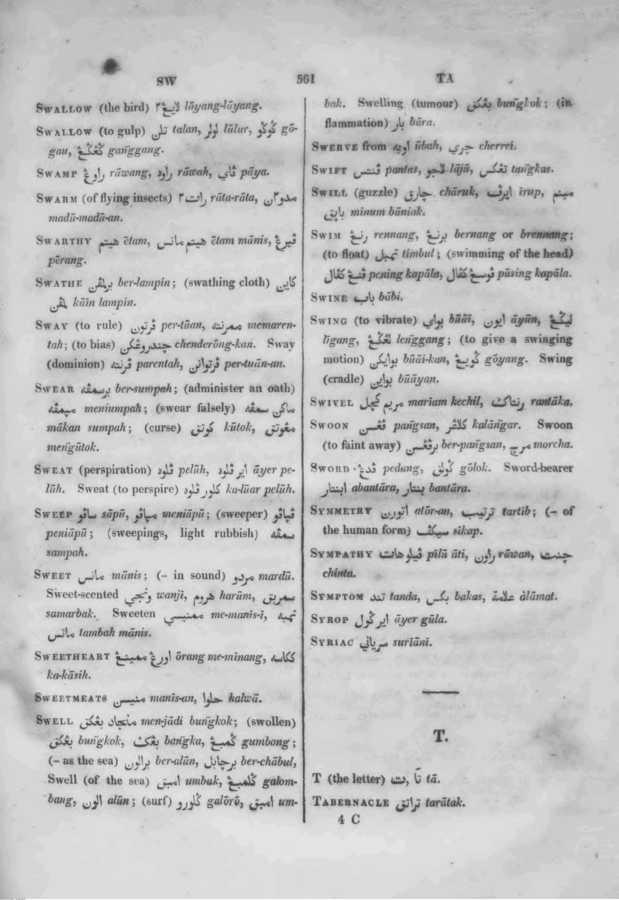 SW 561 TA
SWALLOW (the bird) لايڠ٢ lāyang-lāyang.
SWALLOW (to gulp) تلن talan, لولر lūlur, ݢوݢو gō-
gau, ݢڠݢڠ gang̃gang.
SWAMP راوڠ rāwang, راوه rāwah, ڤاي pāya.
SWARM (of flying insects) رات٢ rāta-rāta, مدو٢ن
madū-madū-an.
SWARTHY هيتم ētam, هيتم مانس ētam mānis, ڤيرڠ
pērang.
SWATHE برلمڤن ber-lampin; (swathing cloth) كاين
لمڤن kāin lampin.
SWAY (to rule) ڤرتون per-tūan, ممرنته memaren-
tah; (to bias) چندروڠكن chenderōng-kan. Sway
(dominion) ڤرنته parentah, ڤرتوانن per-tuān-an.
SWEAR برسمڤه ber-sumpah; (administer an oath)
ميمڤه meniumpah; (swear falsely) ماكن سمڤه
mākan sumpah; (curse) كوتق kūtok, مڠوتق
meng̃ūtok.
SWEAT (perspiration) ڤلوه pelūh, اير ڤلوه āyer pe-
lūh. Sweat (to perspire) كلور ڤلوه ka-lūar pelūh.
SWEEP ساڤو sāpū, مياڤو meniāpū; (sweeper) ڤياڤو
peniāpū; (sweepings, light rubbish) سمڤه
sampah.
SWEET مانس mānis; (- in sound) مردو mardū.
Sweet-scented ونجي wanji, هروم harūm, سمربق
samarbak. Sweeten ممنيسي me-manis-i, تمبه
مانس tambah mānis.
SWEETHEART اورڠ ممينڠ ōrang me-minang, ككاسه
ka-kāsih.
SWEETMEATS منيسن manis-an, حلوا halwā.
SWELL منجاد بڠكق men-jādi bung̃kok; (swollen)
بڠكق bung̃kok, بڠك bang̃ka, ݢمبڠ gumbong;
(- as the sea) برالون ber-alūn, برچابل ber-chābul,
Swell (of the sea) امبق umbuk, ݢلمبڠ galom-
bang, الون alūn; (surf) ݢلورو galōrō, امبق um-
bak. Swelling (tumour) بڠكق bung̃kok; (in
flammation) بار bāra.
SWERVE from اوبه ūbah, چرري cherrei.
SWIFT ڤنتس pantas, لاجو lājū, تڠكس tang̃kas.
SWILL (guzzle) چارق chāruk, ايرڤ irup, مينم
باپق minum bāniak.
SWIM رنڠ rennang, برنڠ bernang or brennang;
(to float) تمبل timbul; (swimming of the head)
ڤنڠ كڤال pening kapāla, ڤوسڠ كڤال pūsing kapāla.
SWINE بابي bābi.
SWING (to vibrate) بواي būāi, ايون āyūn, ليڠݢڠ
līgang, لڠݢڠ leng̃gang; (to give a swinging
motion) بوايكن būāi-kan, ݢويڠ gōyang. Swing
(cradle) بواين būāyan.
SWIVEL مريم كچل mariam kechil, رنتاك rantāka.
SWOON ڤڠسن pang̃san, كلاڠر kalāng̃ar. Swoon
(to faint away) برڤڠسن ber-pang̃san, مرچ morcha.
SWORD ڤدڠ pedang, ݢولق gōlok. Sword-bearer
ابنتار abantāra, بنتار bantāra.
SYMMETRY اتورن atūr-an, ترتيب tartib; (- of
the human form) سيكڤ sikap.
SYMPATHY ڤيلو هات pilū āti, راون rāwan, چنت
chinta.
SYMPTOM تند tanda, بكس bakas, علامة ālāmat.
SYROP اير ݢول āyer gūla.
SYRIAC سرياني suriāni.
T.
T (the letter) ت, تا tā.
TABERNACLE تراتق tarātak.
4 C